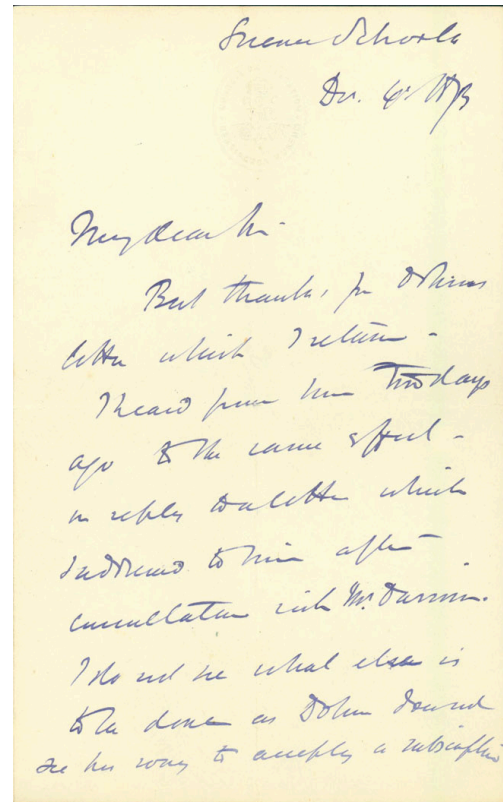 Science Schools
Dec. 4th 1873
My dear Sir
Best thanks, for Dohrns
letter which I return -
I heard from him two days
ago to the same effect -
in reply to a letter which
I addressed to him after
consultation with Mr. Darwin.
I do not see what else is
to be done as Dohrn does not
see his way to accepting a subscription